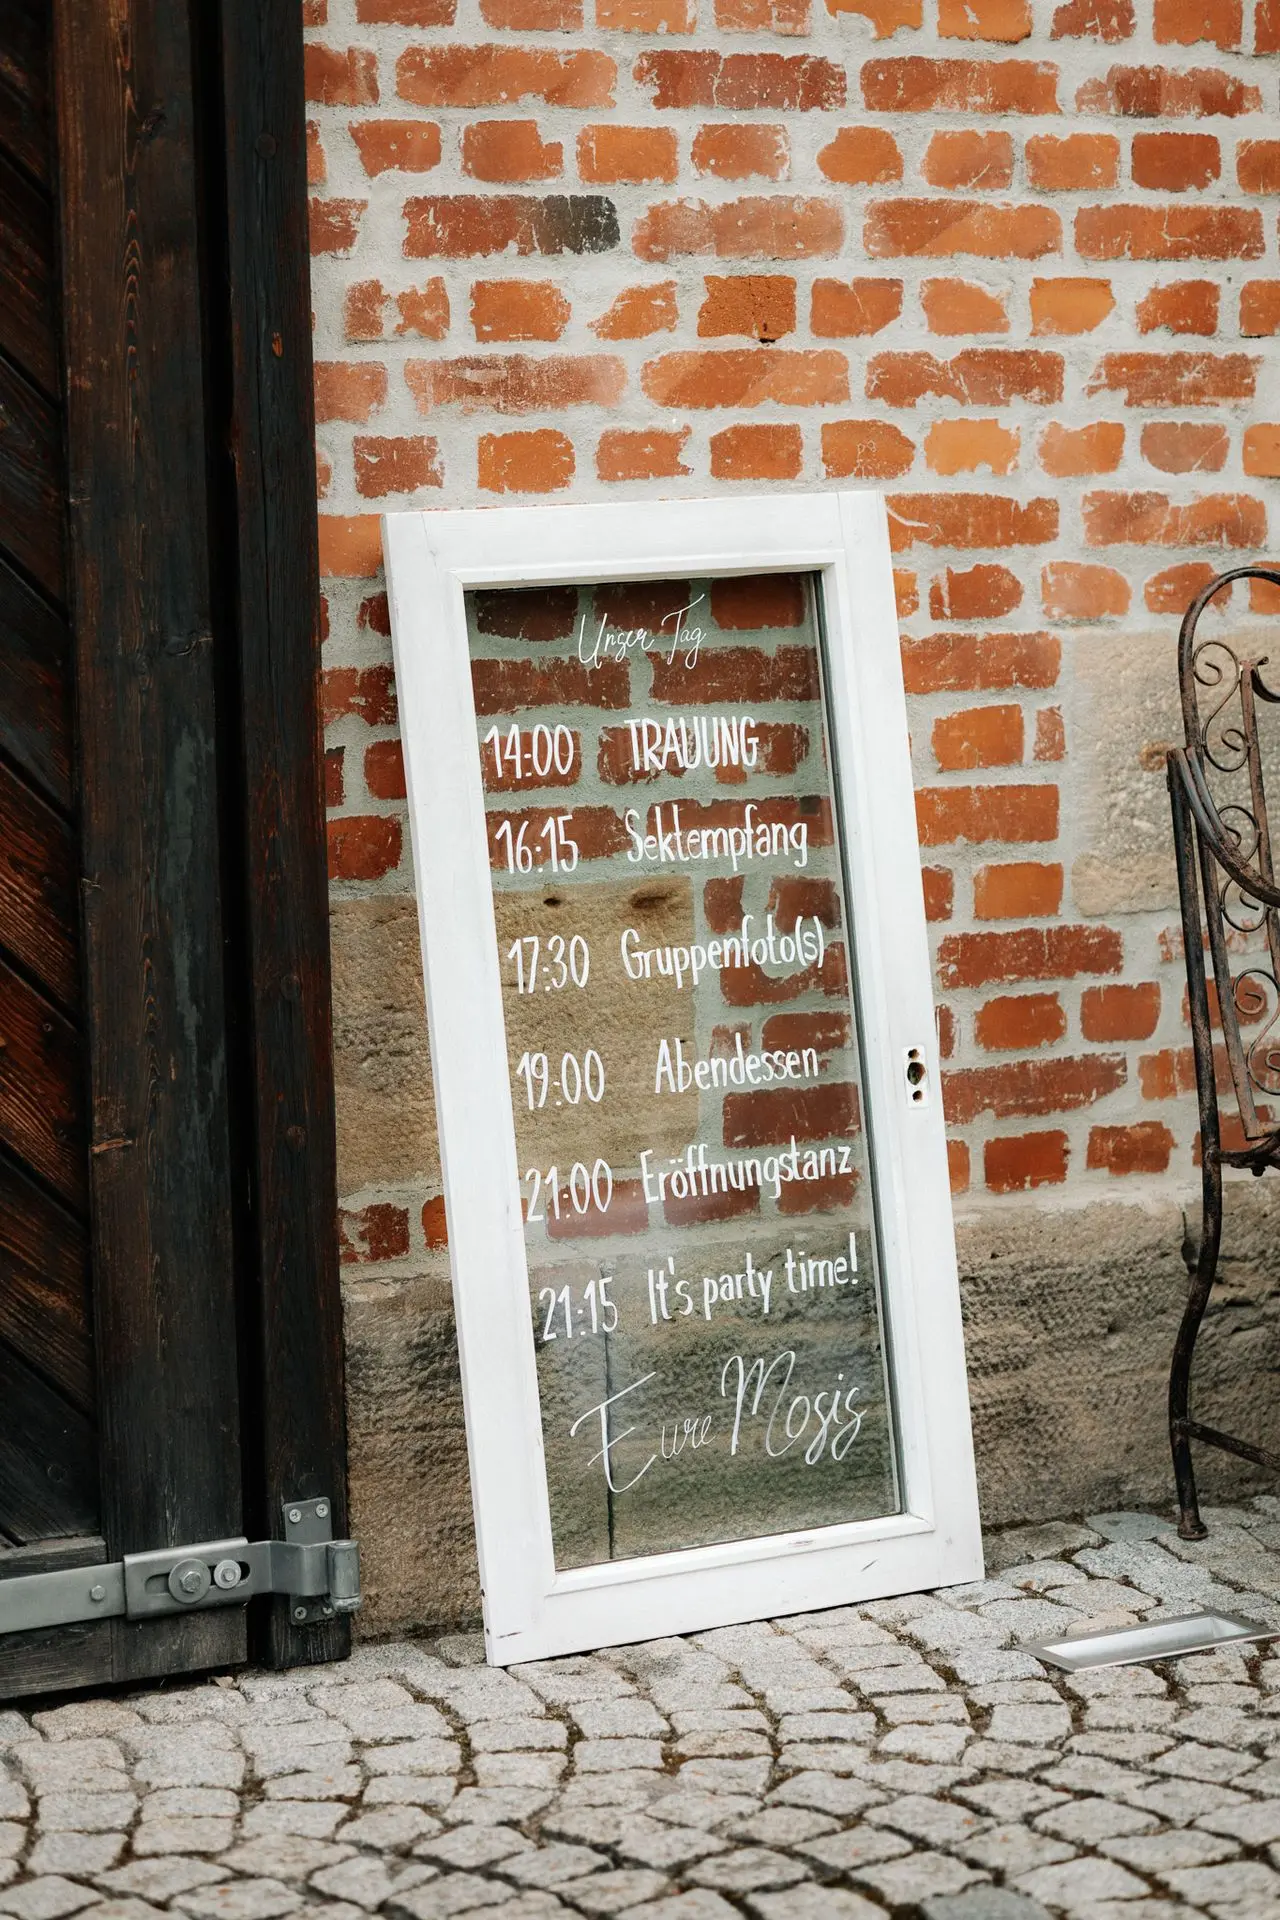 Unser Tag
14:00 TRAUUNG
16:15 Sektempfang
17:30 Gruppenfoto(s)
19:00 Abendessen
21:00 Eröffnungstanz
21:15 It's party time!
Eure Mosis